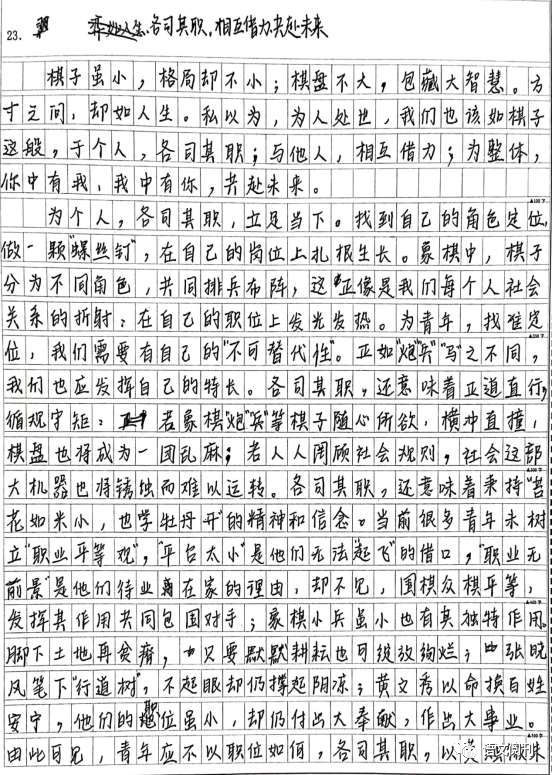 23. 各司其职,相互借力,共赴未来
棋子虽小,格局却不小;棋盘不大,包藏大智慧。方
寸之间,却如人生。私以为,为人处世,我们也该如棋子
这般,于个人,各司其职;与他人,相互借力;为整体,
你中有我,我中有你,共赴未来。
为个人,各司其职,立足当下。找到自己的角色定位,
做一颗"螺丝钉",在自己的岗位上扎根生长。象棋中,棋子
分为不同角色,共同排兵布阵,这正像是我们每个人社会
关系的折射:在自己的职位上发光发热。为青年,找准定
位,我们需要有自己的"不可替代性"。正如"炮""兵""马"之不同,
我们也应发挥自己的特长。各司其职,还意味着正道直行,
循规守矩:若象棋"炮""兵"等棋子随心所欲,横冲直撞,
棋盘也将成为一团乱麻;若人人罔顾社会规则,社会这部
大机器也将锈蚀而难以运转。各司其职,还意味着秉持"苔
花如米小,也学牡丹开"的精神和信念。当前很多青年未树
立"职业平等观","平台太小"是他们无法"起飞"的借口,"职业无
前景"是他们待业在家的理由,却不见,围棋众棋平等,
发挥其作用共同包围对手;象棋小兵虽小也有其独特作用。
脚下土地再贫瘠,只要默默耕耘也可绽放绚烂;张晓
风笔下"行道树",不起眼却仍撑起阴凉;黄文秀以命换百姓
安宁,他们的职位虽小,却仍付出大奉献,作出大事业。
由此可见,青年应不以职位如何,各司其职,以